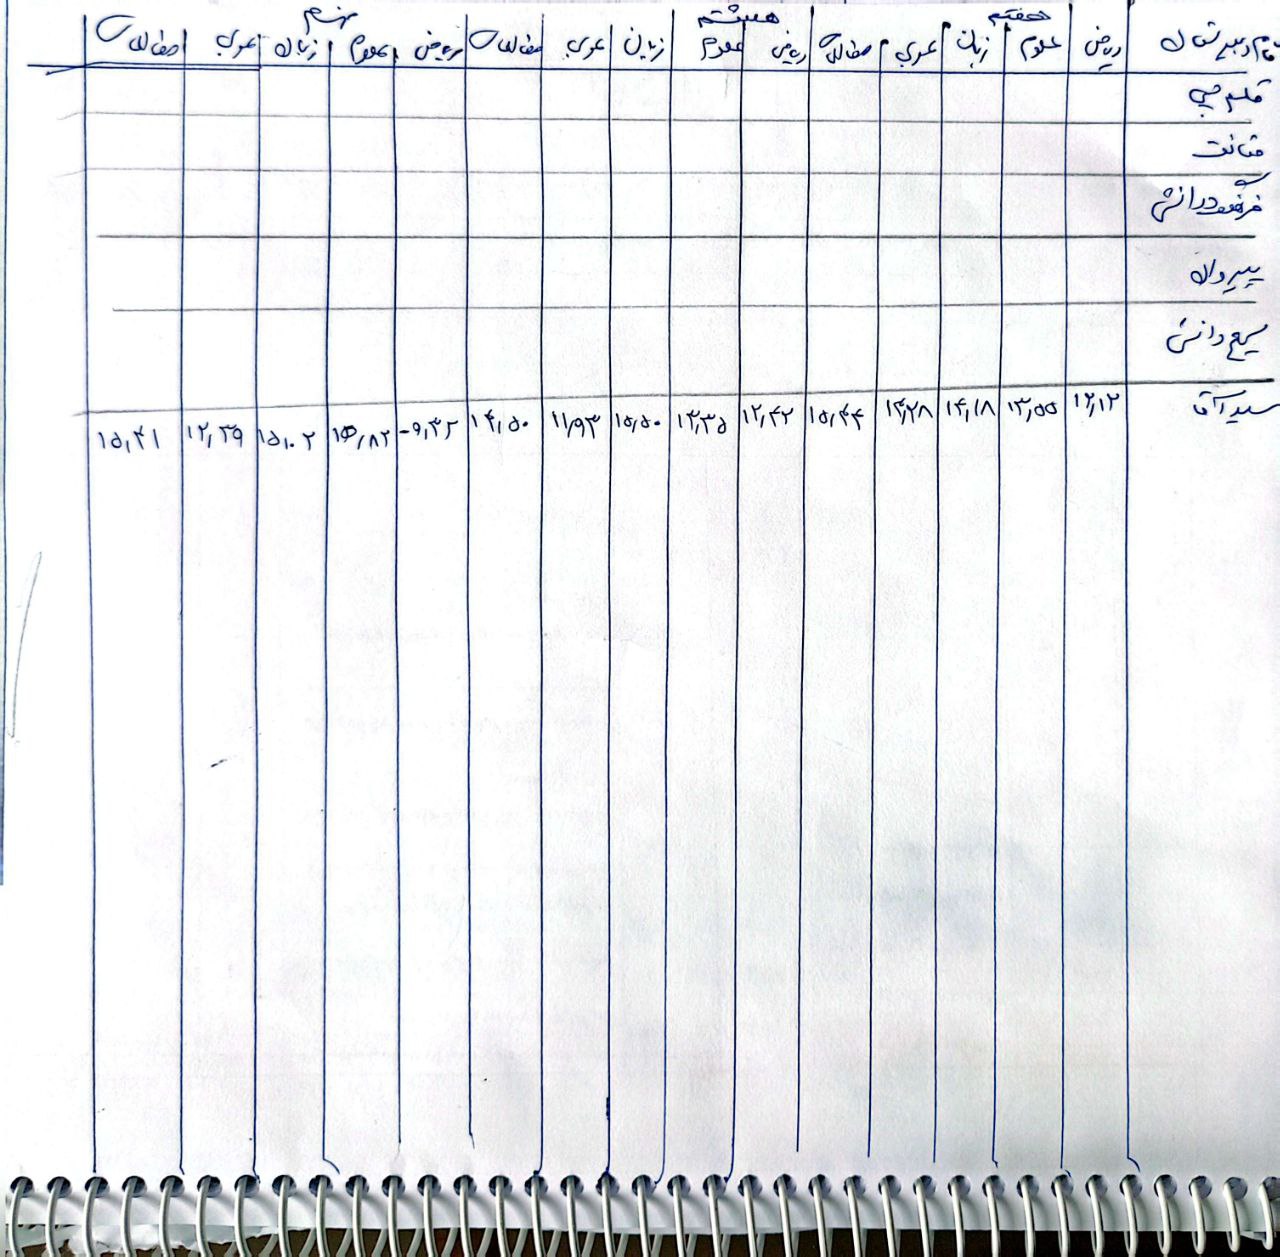 هفتم هشتم نهم
نام دبیرستان ریاضی علوم زبان عربی مطالعات ریاضی علوم زبان عربی مطالعات ریاضی علوم زبان عربی مطالعات
قلم چی
متانت
فرهنگ دانش
پیروان
بسیج دانش
سیدآقا ۱۲,۱۲ ۱۳,۵۵ ۱۴,۱۸ ۱۴,۲۸ ۱۵,۴۴ ۱۲,۴۲ ۱۳,۳۵ ۱۵,۵۰ ۱۱,۹۳ ۱۴,۵۰ ۰۹,۴۲ ۱۵,۸۲ ۱۵,۰۲ ۱۲,۳۹ ۱۵,۴۱